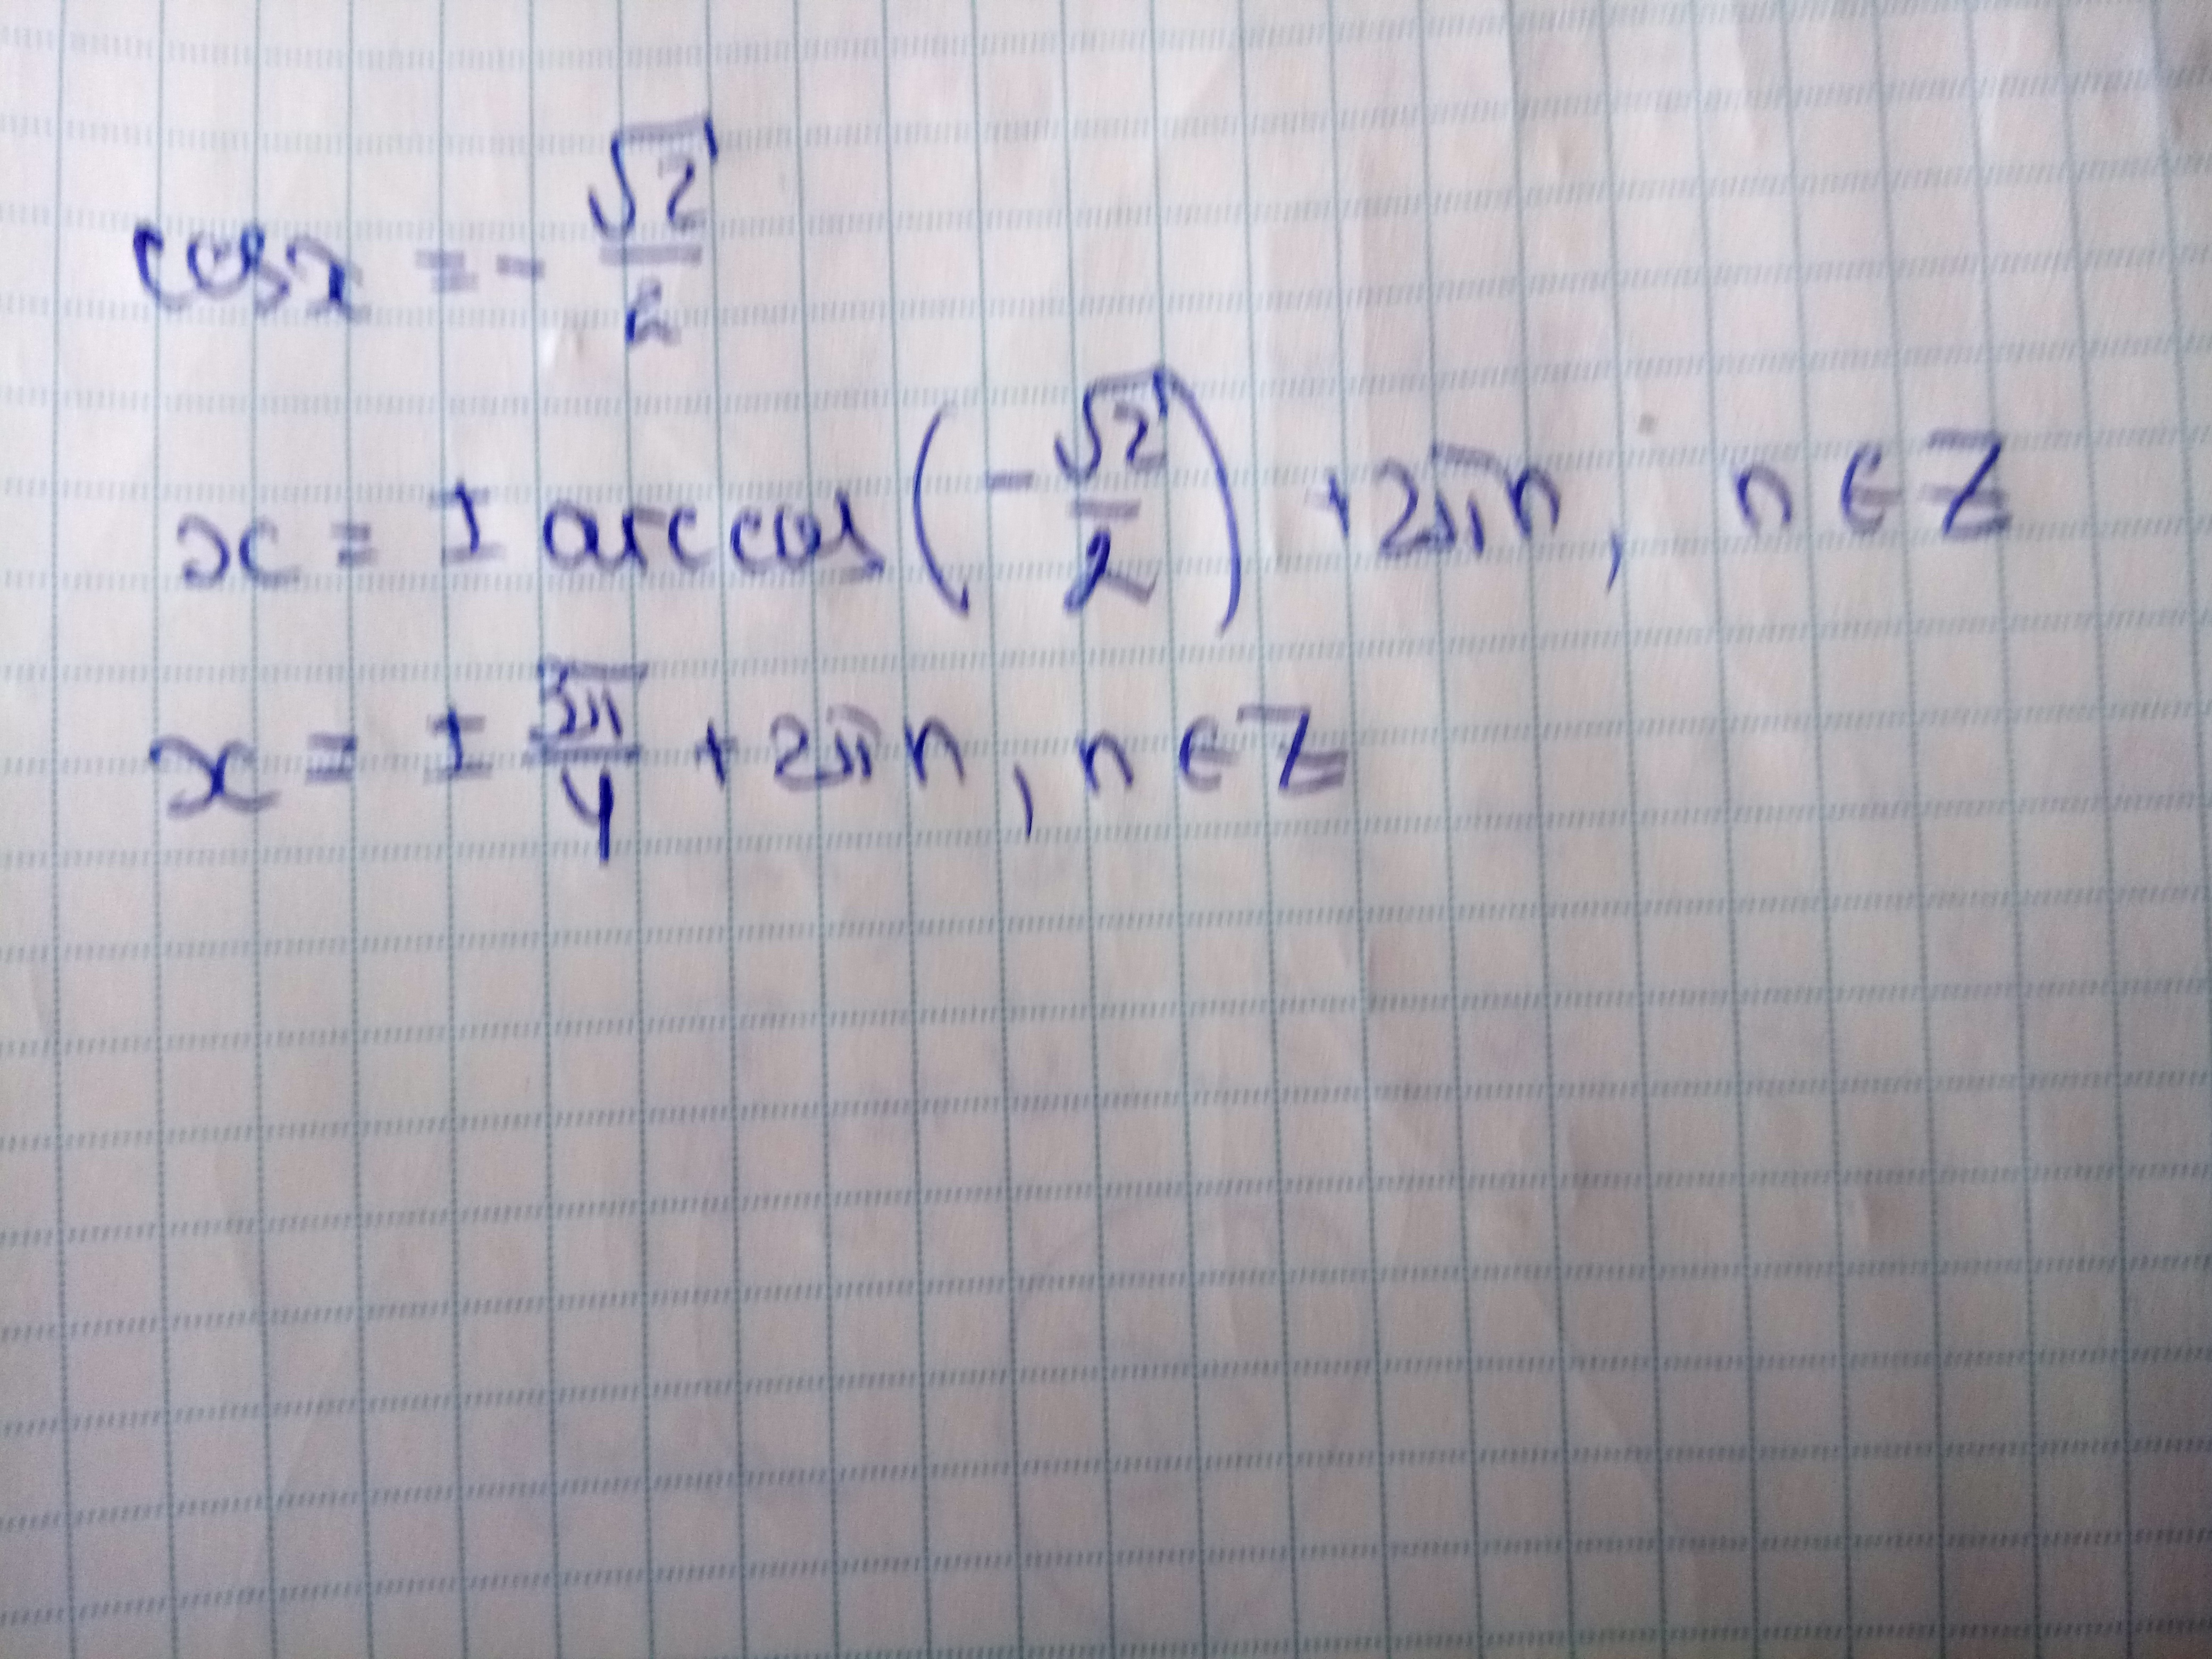 cosx = - √2/2
x = ± arccos(-√2/2) + 2πn, n ∈ Z
x = ± 3π/4 + 2πn, n ∈ Z